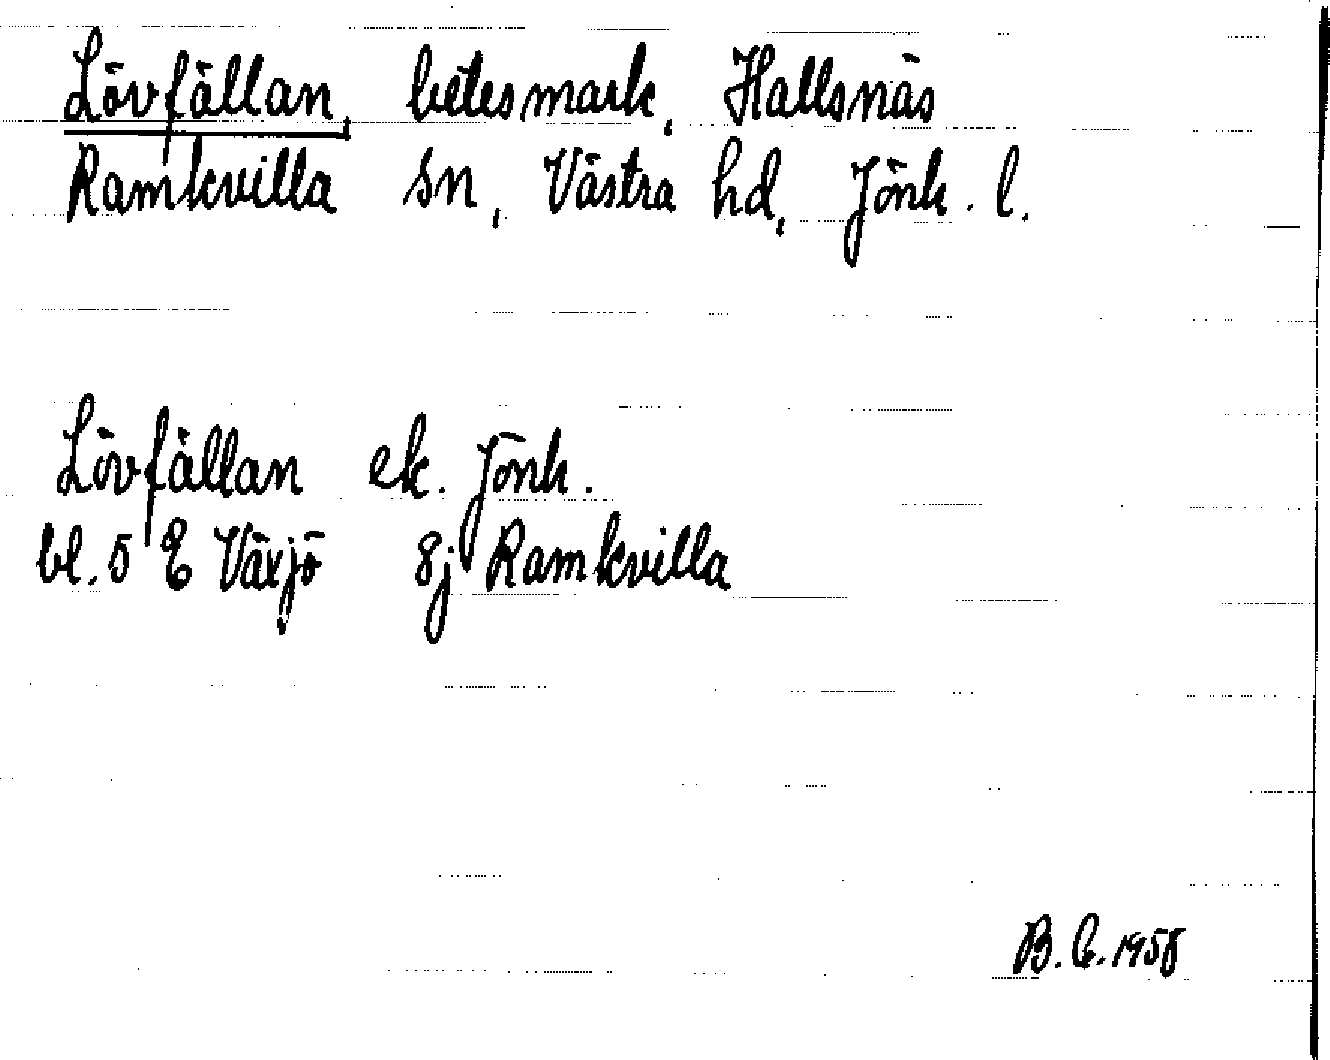 Lövfällan, betesmark, Hallsnäs
Ramkvilla sn, Västra hd, Jönk. l.
Lövfällan ek. Jönk.
bl. 5 E Växjö 8j Ramkvilla
B. E. 1958